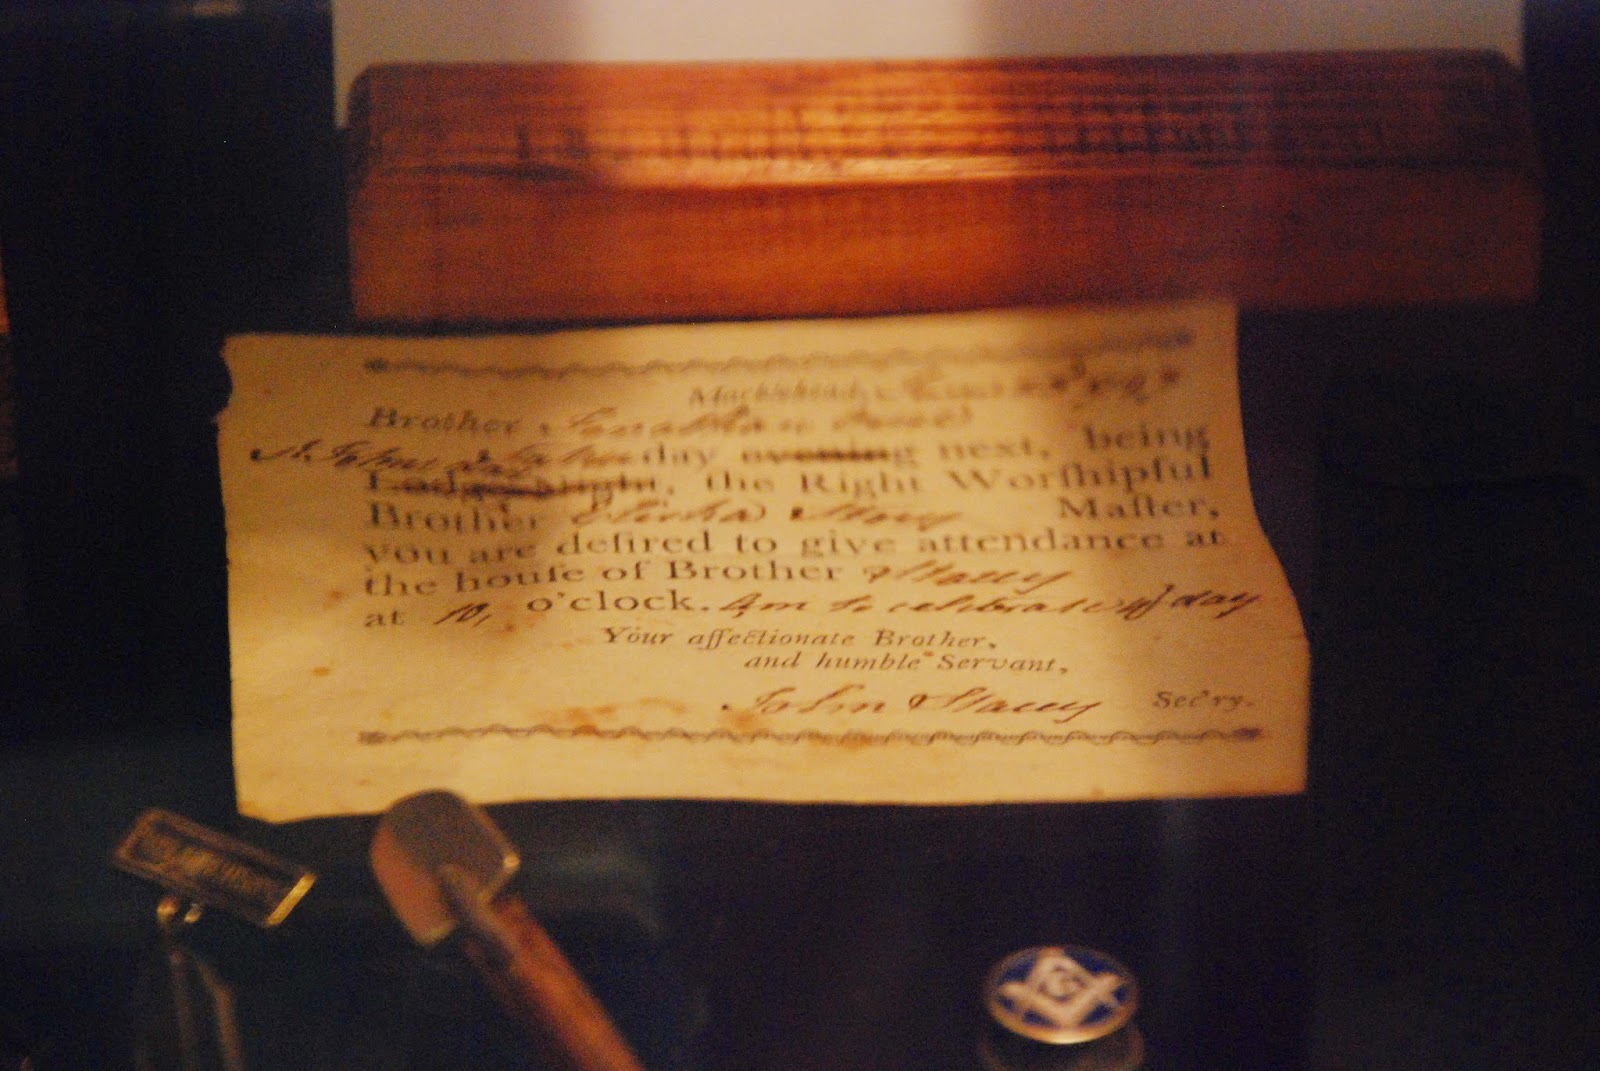 Marblehead,
Brother Jonathan
St. Johns day day evening next, being
Lodge Night, the Right Worſhipful
Brother Elisha Story Maſter,
you are deſired to give attendance at
the houſe of Brother Stacey
at 10, o'clock. Am to celebrate sd day
Your affectionate Brother,
and humble Servant,
John Stacey Sec'ry.
G